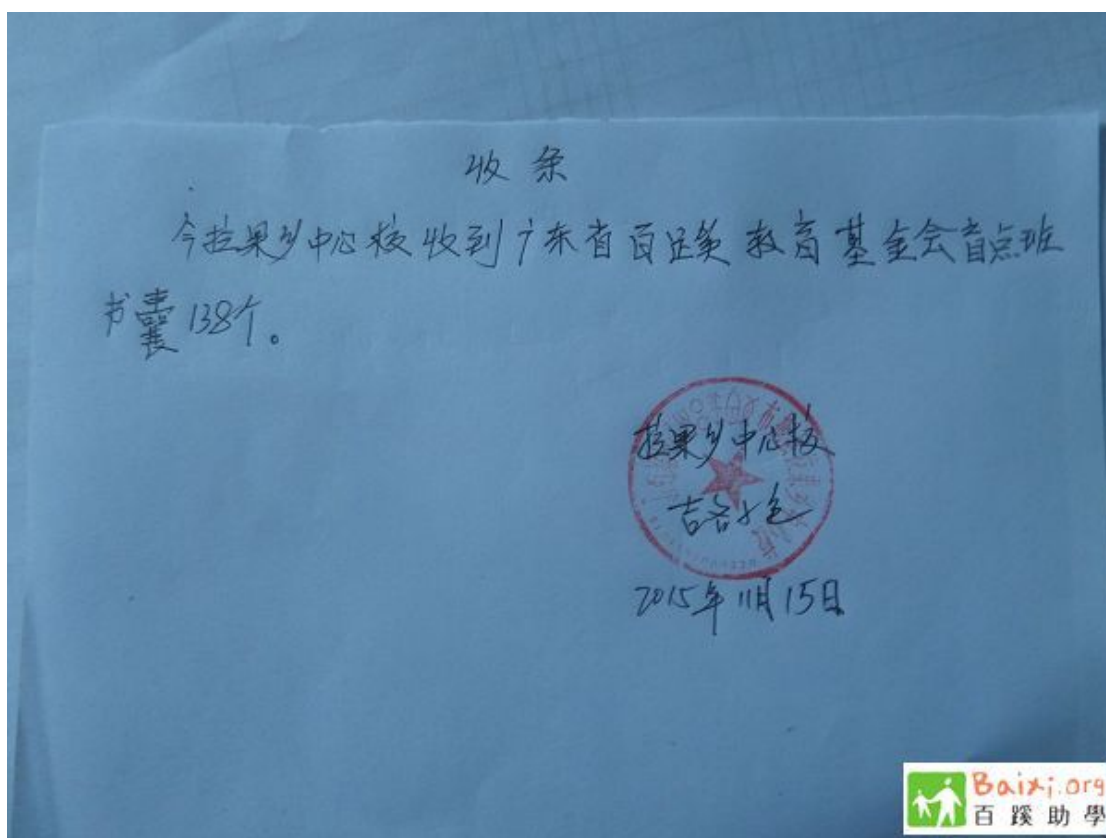 收条
今拉果乡中心校收到广东省百蹊教育基金会盲点班
书囊138个。
拉果乡中心校
吉洛
2015年11月15日
Baixi.org
百蹊助學